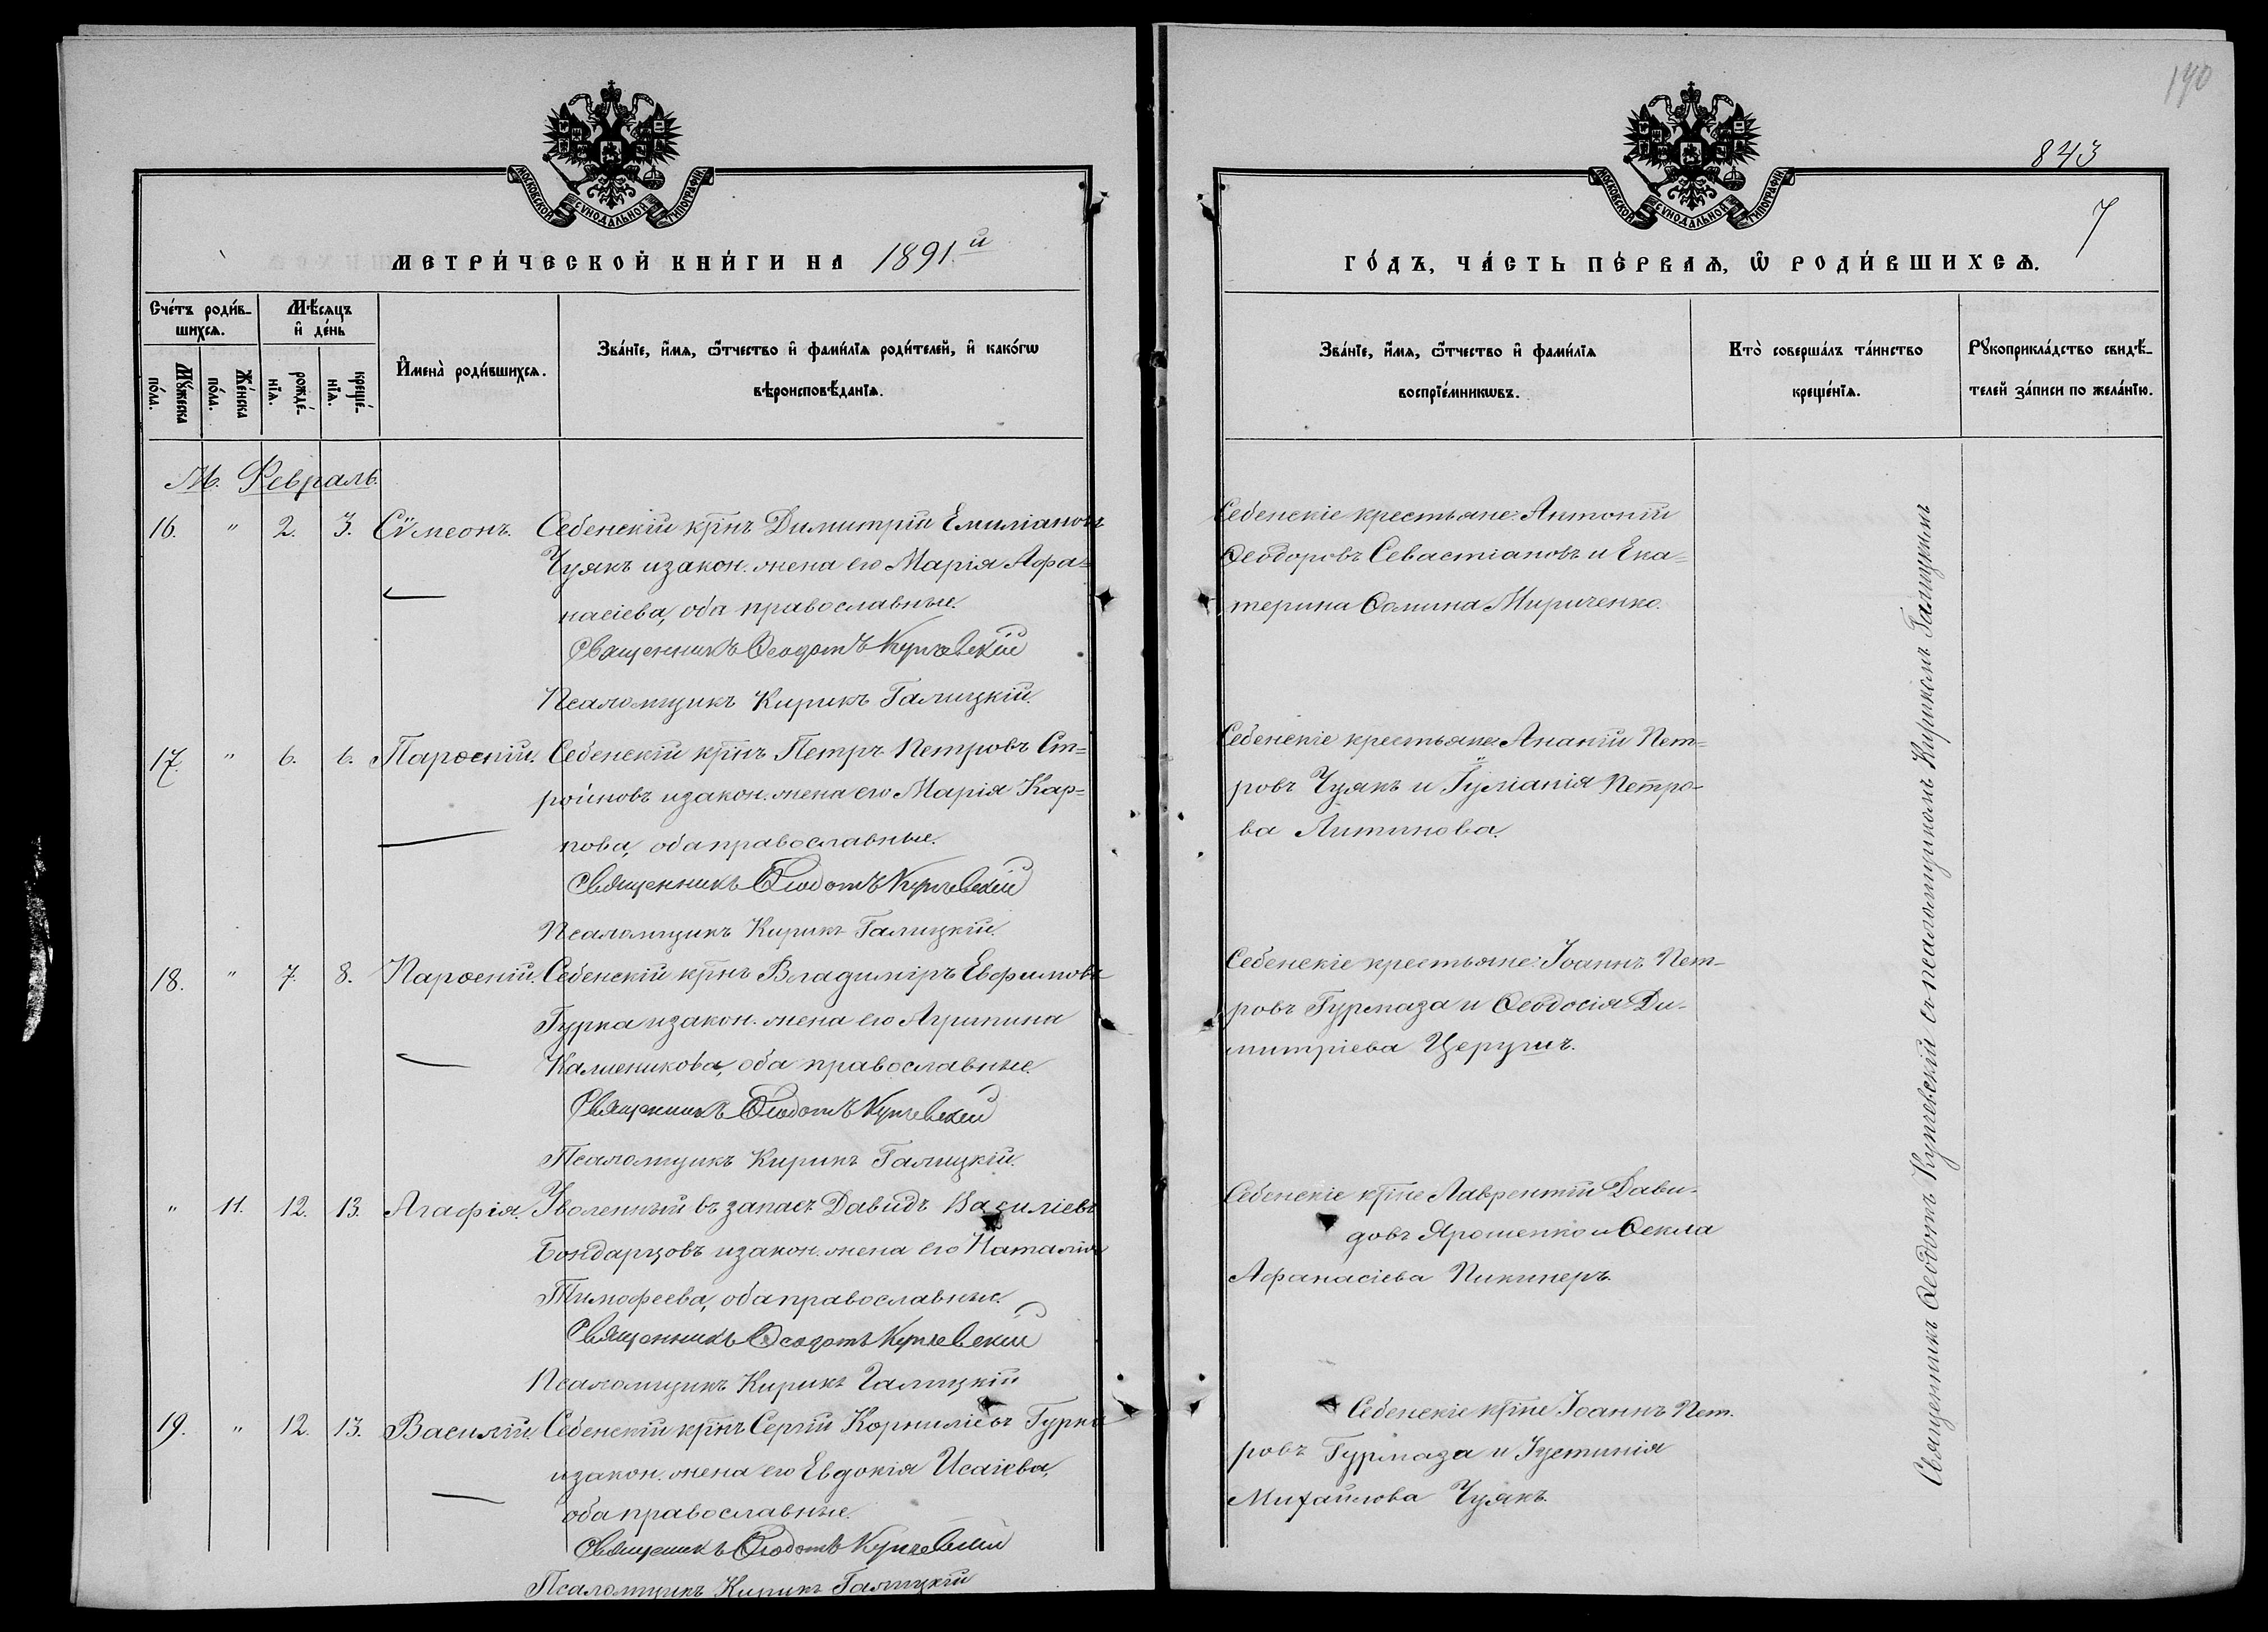 190
843
7
МОСКОВСКОЙ СѴНОДАЛЬНОЙ ТИПОГРАФІИ
МЕТРИ́ЧЕСКОЙ КНИ́ГИ НА 1891й
Сче́тъ роди́в-
шихсѧ.
Мѣ́сѧцъ
и҆ де́нь
Мꙋ́жеска
по́ла.
Же́нска
по́ла.
рожде́-
нїѧ.
креще́-
нїѧ.
И҆мена̀ роди́вшихсѧ.
Зва́нїе, и҆́мѧ, ѻ҆́тчество и҆ фами́лїѧ роди́телей, и҆ како́гѡ
вѣроисповѣ́данїѧ.
М. Февраль.
16. " 2. 3. Сѵмеонъ. Себенскій кр҃нъ Димитрій Емиліановъ
Чуякъ и закон. жена его Марія Афа=
насіева, оба православные.
Священникъ Ѳеодотъ Купчевскій
Псаломщикъ Кирикъ Галицкій.
17. " 6. 6. Парѳеній. Себенскій кр҃нъ Петръ Петровъ Ст=
ройновъ и закон. жена его Марія Кар=
пова, оба православные.
Священникъ Ѳеодотъ Купчевскій
Псаломщикъ Кирикъ Галицкій.
18. " 7. 8. Парѳеній. Себенскій кр҃нъ Владиміръ Евфимовъ
Гурка и закон. жена его Агрипина
Калиеникова, оба православные.
Священникъ Ѳеодотъ Купчевскій
Псаломщикъ Кирикъ Галицкій.
" 11. 12. 13. Агафія. Уволенный въ запасъ Давидъ Василіевъ
Бондарцовъ и закон. жена его Наталія
Тимофеева, оба православные.
Священникъ Ѳеодотъ Купчевскій
Псаломщикъ Кирикъ Галицкій
19. " 12. 13. Василій. Себенскій кр҃нъ Сергій Корниліевъ Гурка
и закон. жена его Евдокія Исаіева,
оба православные.
Священникъ Ѳеодотъ Купчевскій
Псаломщикъ Кирикъ Галицкій
МОСКОВСКОЙ СѴНОДАЛЬНОЙ ТИПОГРАФІИ
ГО́ДЪ, ЧА́СТЬ ПЕ́РВАѦ, Ѡ҆ РОДИ́ВШИХСѦ.
Зва́нїе, и҆́мѧ, ѻ҆́тчество и҆ фами́лїѧ
воспрїе́мникѡвъ.
Кто̀ соверша́лъ та́инство
креще́нїѧ.
Рꙋкоприкла́дство свидѣ́-
телей за́писи по жела́нїю.
Себенскіе крестьяне: Антоній
Ѳеодоровъ Севастіановъ и Ека=
терина Ѳомина Мириченко.
Себенскіе крестьяне Ананій Пет=
ровъ Чуякъ и Іуліанія Петро-
ва Литинова.
Себенскіе крестьяне: Іоаннъ Пет-
ровъ Гурмаза и Ѳеодосія Ди-
митріева Церугич.
Себенскіе кр҃не Лаврентій Дави-
довъ Ярошенко и Ѳекла
Афанасіева Пикинеръ.
Себенскіе кр҃не Іоаннъ Пет.
ровъ Гурмаза и Іустинія
Михайлова Чуякъ.
Священникъ Ѳеодотъ Купчевскій съ псаломщикомъ Кирикомъ Галицкимъ